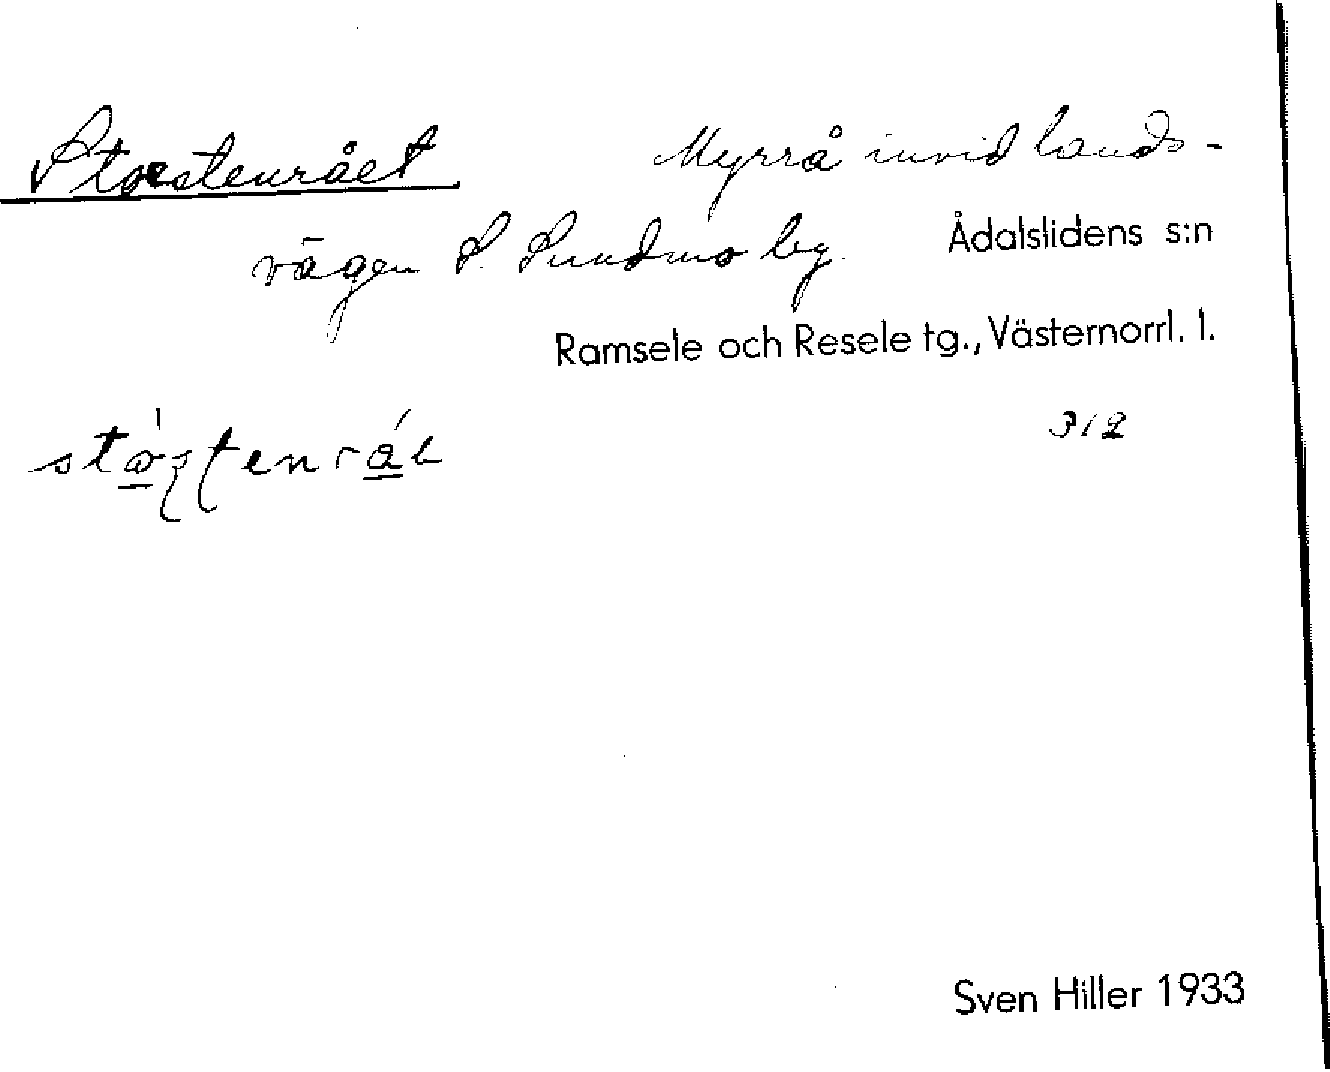 Storstenrået Myrrå invid lands-
vägen S. Sundmo by. Ådalslidens s:n
Ramsele och Resele tg., Västernorrl. l.
312
Sven Hiller 1933